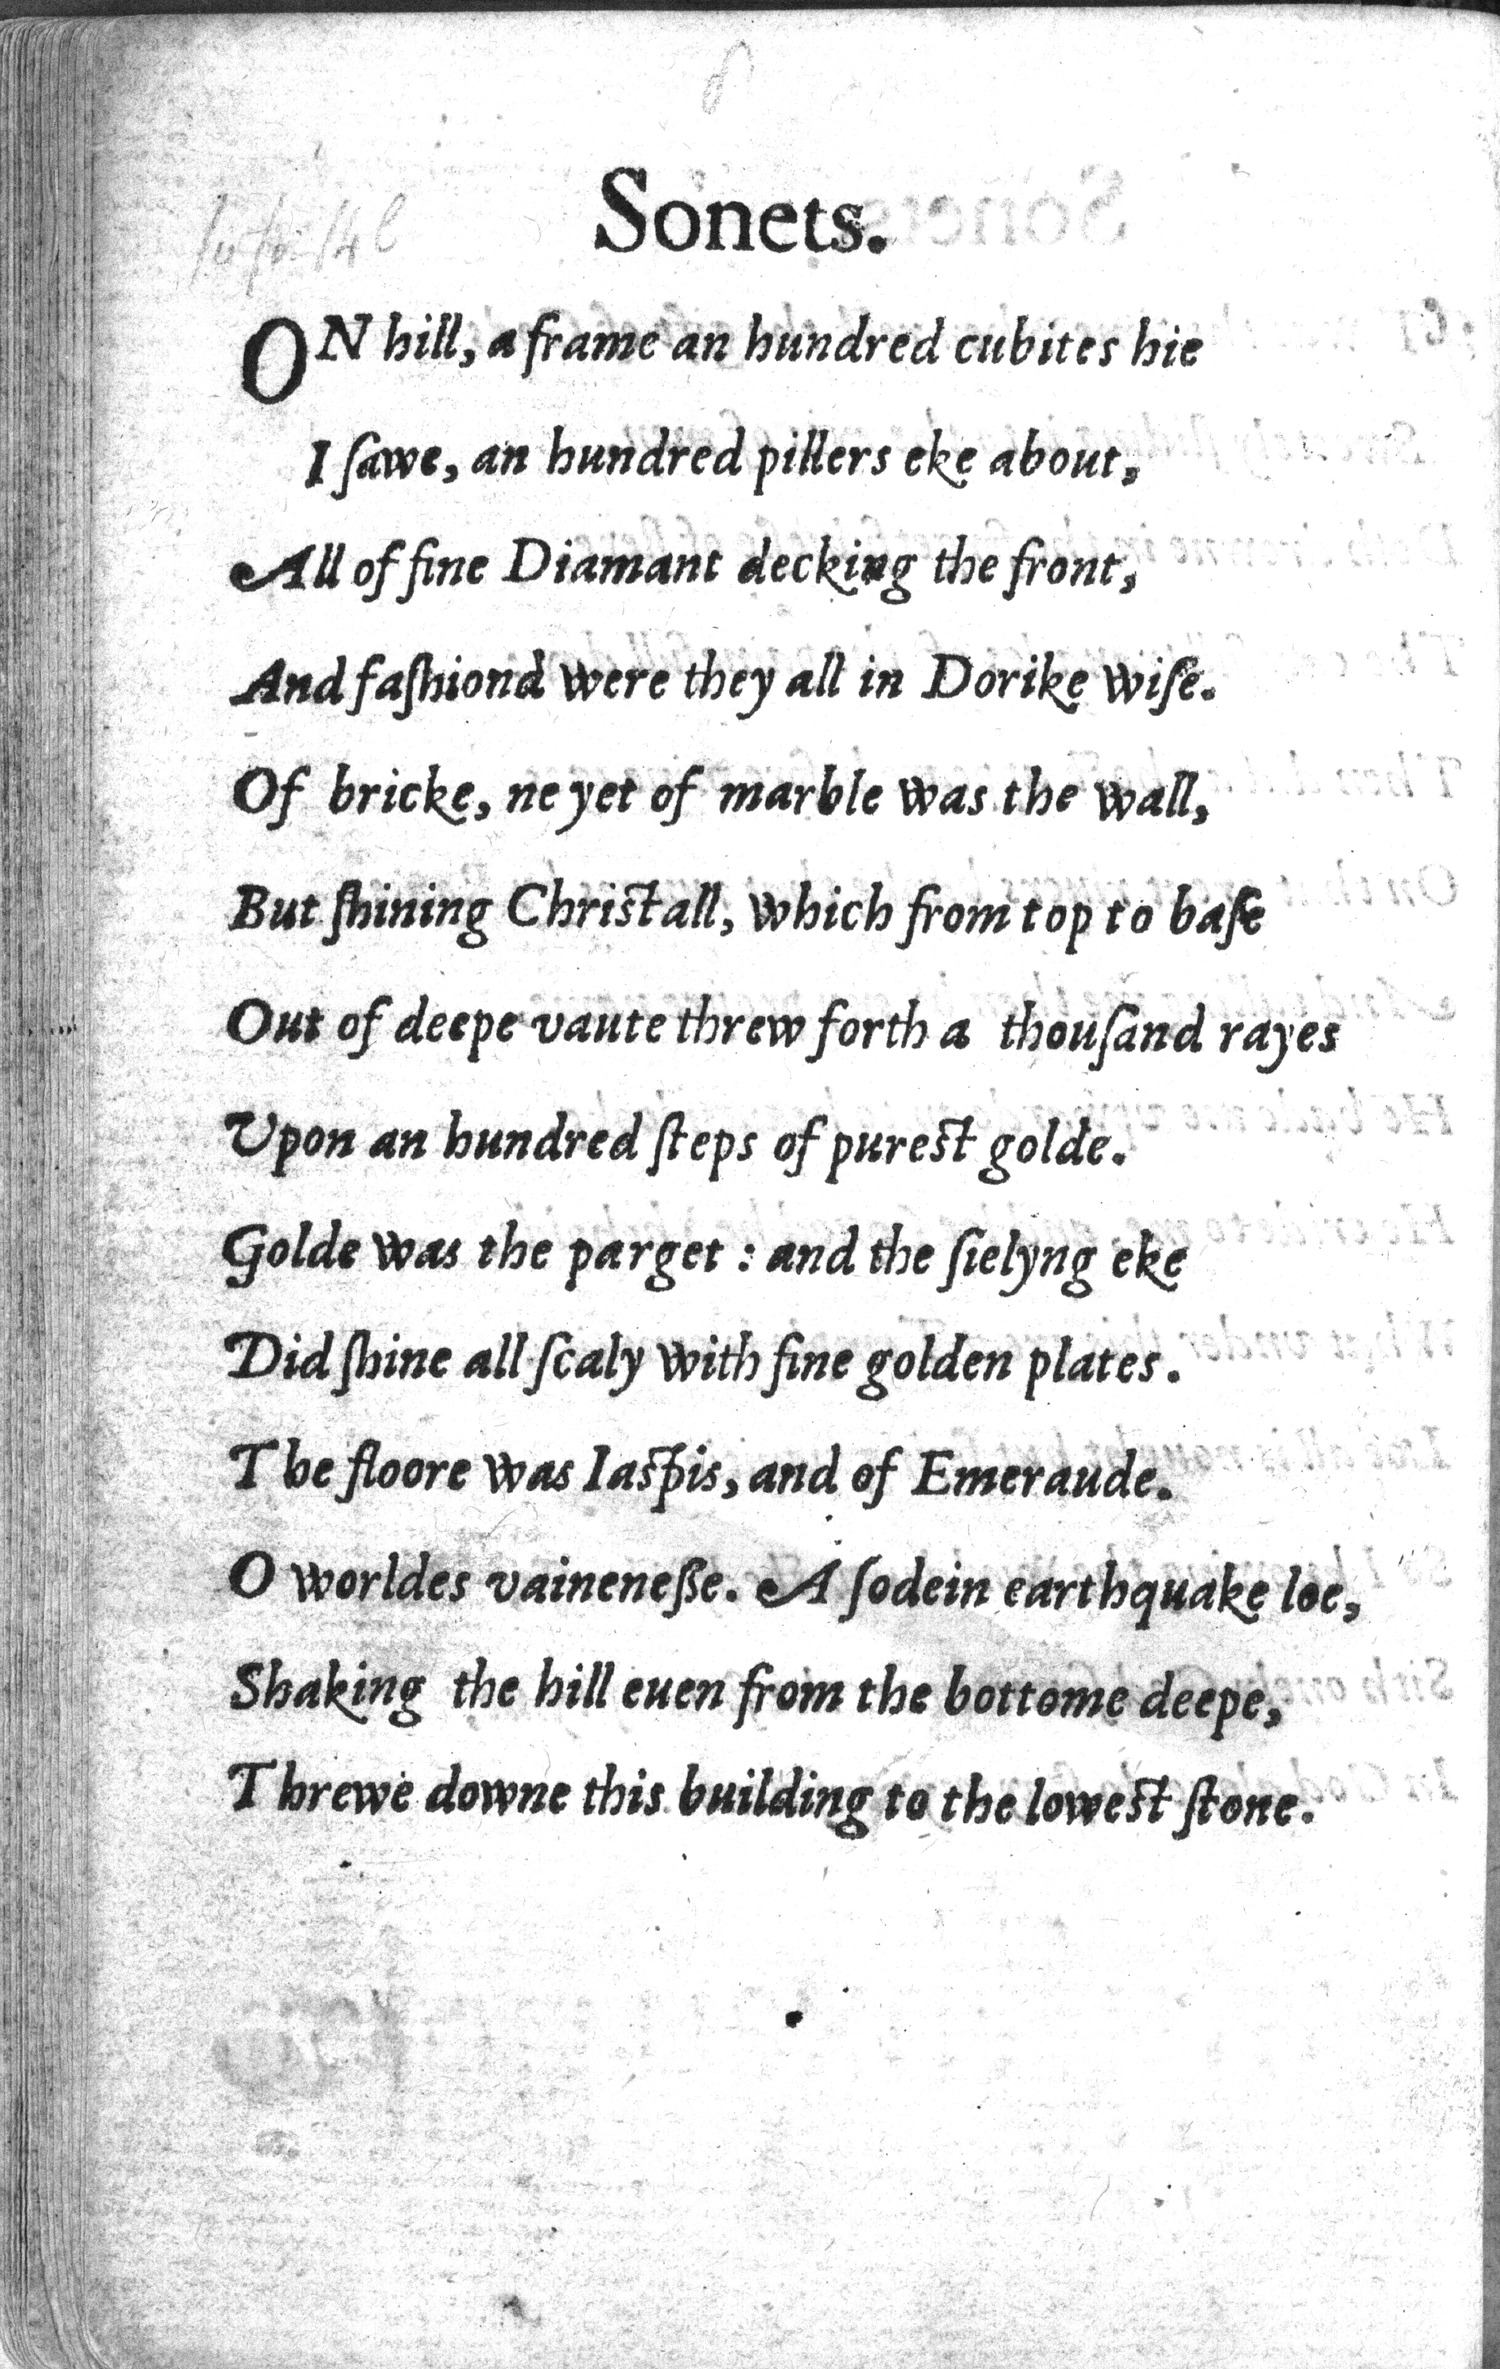 Sonets.
ON hill, a frame an hundred cubites hie
I ſawe, an hundred pillers eke about,
All of fine Diamant decking the front,
And faſhiond were they all in Dorike wiſe.
Of bricke, ne yet of marble was the wall,
But ſhining Chriſtall, which from top to baſe
Out of deepe vaute threw forth a thouſand rayes
Vpon an hundred ſteps of pureſt golde.
Golde was the parget : and the ſielyng eke
Did ſhine all ſcaly with fine golden plates.
The floore was Iaſpis, and of Emeraude.
O worldes vaineneſſe. A ſodein earthquake loe,
Shaking the hill euen from the bottome deepe,
Threwe downe this building to the loweſt ſtone.